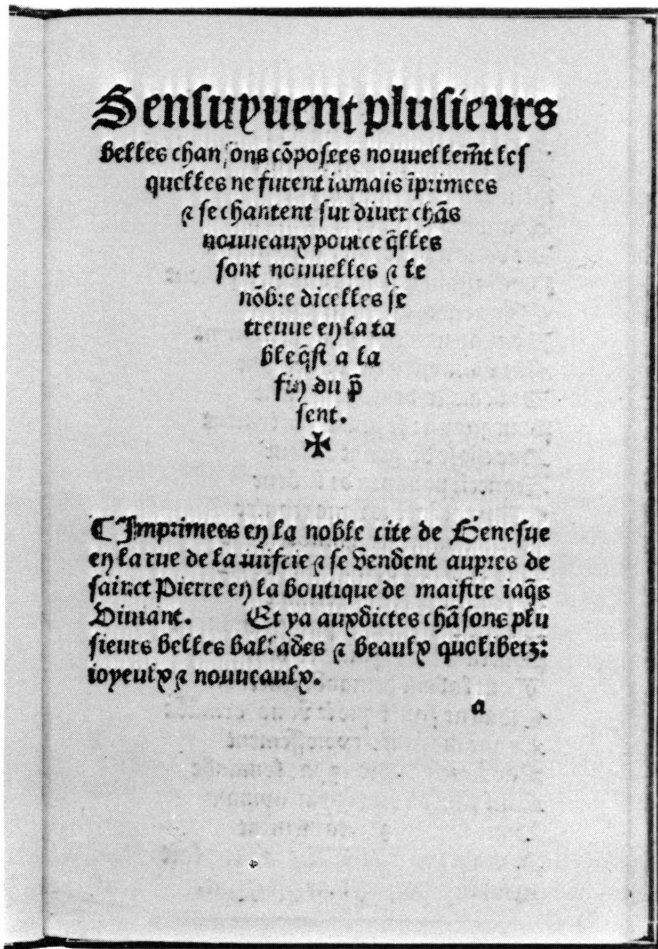 Sensuyuent plusieurs
belles chansons cōposees nouuellem̄t les
quelles ne furent iamais īprimees
⁊ se chantent sur diuer chās
nouueaux pource q̄lles
sont nouuelles ⁊ le
nōbre dicelles se
treuue en la ta
ble q̄st a la
fin du p̄
sent.
✠
¶ Imprimees en la noble cite de Genesue
en la rue de la iuifrie ⁊ se vendent aupres de
sainct Pierre en la boutique de maistre iaq̄s
Viuiant. Et ya auxdictes chāsons plu
sieurs belles ballades ⁊ beaulx quolibetz:
ioyeulx ⁊ nouueaulx.
a